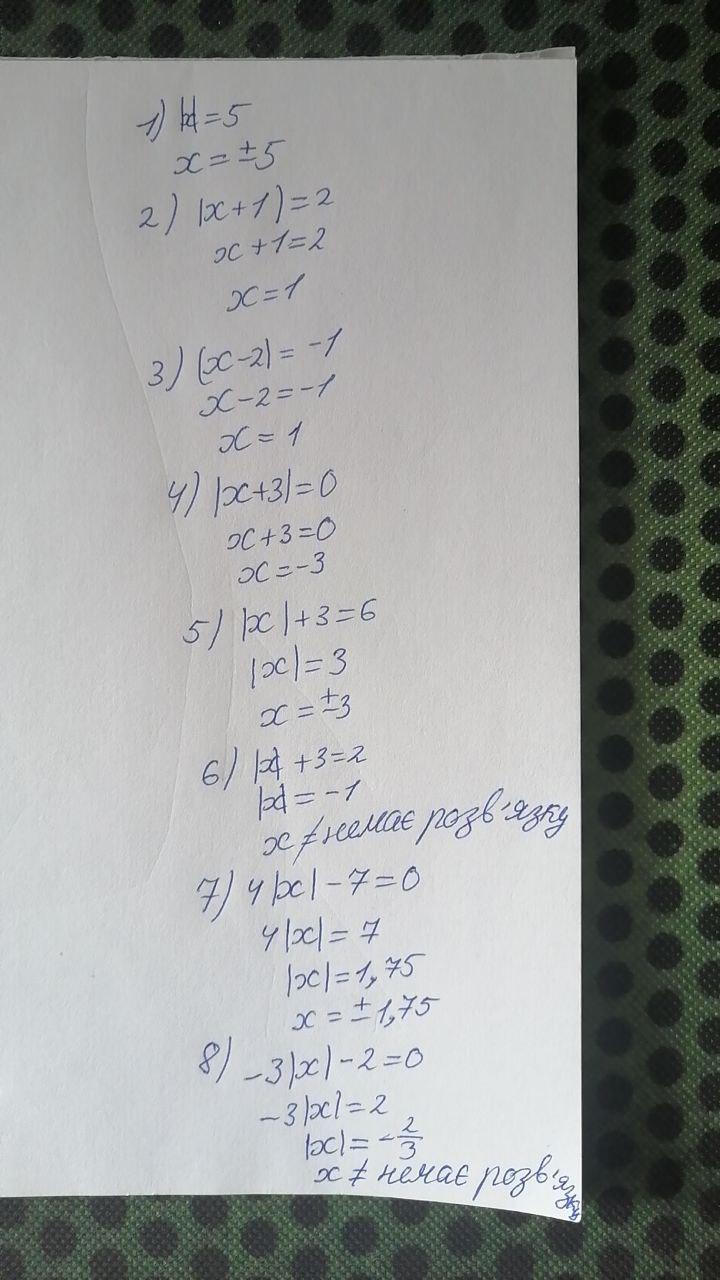 1) |x|=5
x=±5
2) |x+1)=2
x+1=2
x=1
3) (x-2|=-1
x-2=-1
x=1
4) |x+3|=0
x+3=0
x=-3
5) |x|+3=6
|x|=3
x=±3
6) |x|+3=2
|x|=-1
x≠немає розв'язку
7) 4|x|-7=0
4|x|=7
|x|=1,75
x=±1,75
8) -3|x|-2=0
-3|x|=2
|x|=-2/3
x≠немає розв'язку